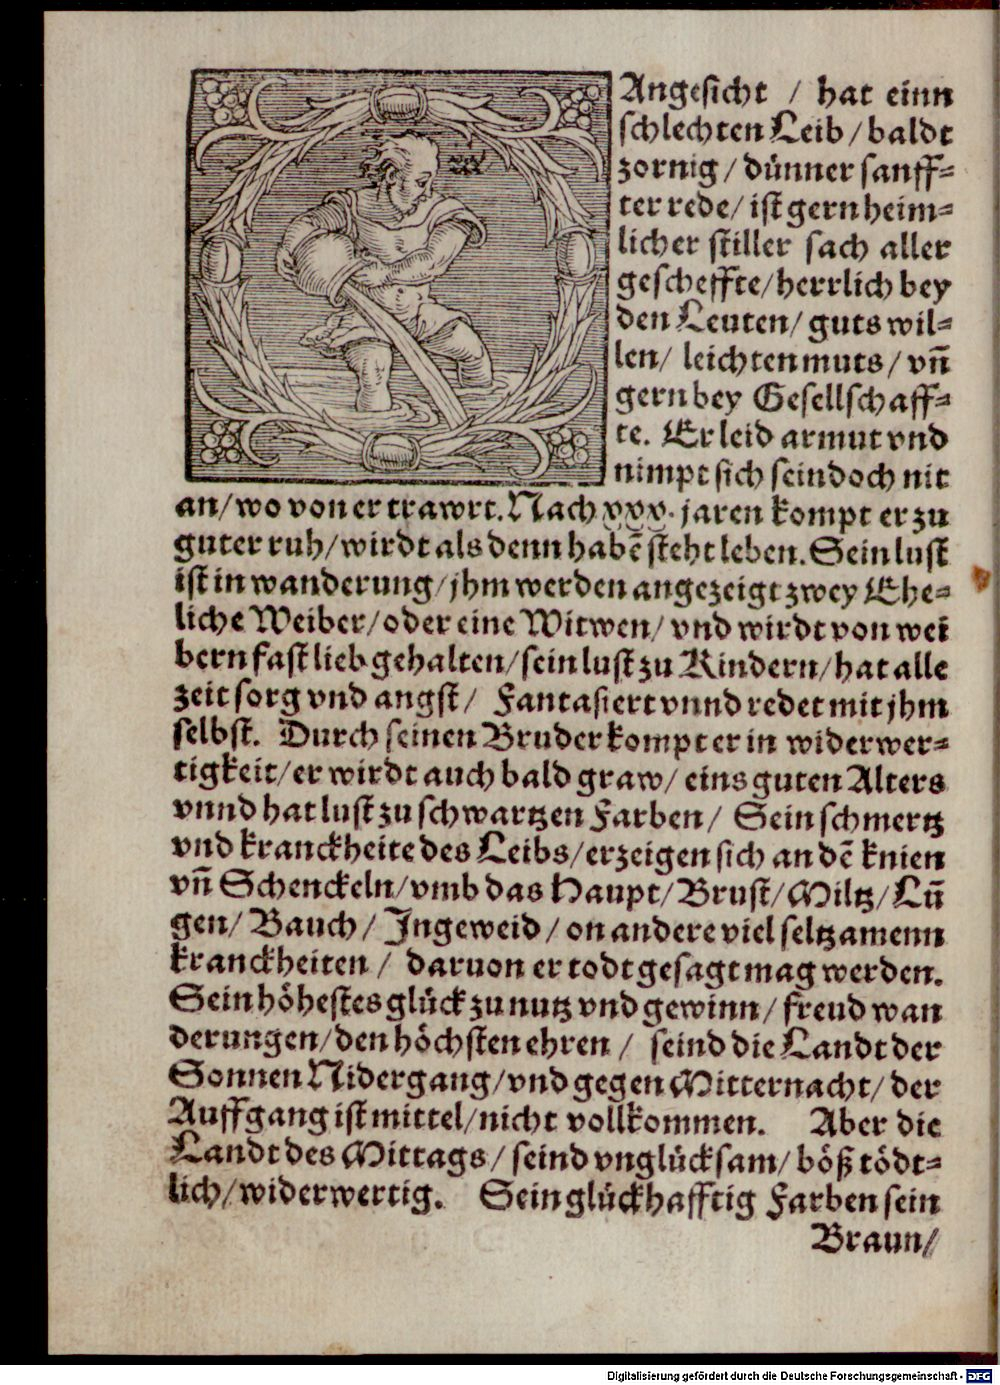 Angesicht / hat einn
schlechten Leib / baldt
zornig / dünner sanff⸗
ter rede / ist gern heim⸗
licher stiller sach aller
gescheffte / herrlich bey
den Leuten / guts wil⸗
len / leichten muts / vñ
gern bey Gesellschaff⸗
te. Er leid armut vnd
nimpt sich sein doch nit
an / wo von er trawrt. Nach xxx. jaren kompt er zu
guter ruh / wirdt als denn habē steht leben. Sein lust
ist in wanderung / jhm werden angezeigt zwey Ehe⸗
liche Weiber / oder eine Witwen / vnd wirdt von wei
bern fast lieb gehalten / sein lust zu Kindern / hat alle
zeit sorg vnd angst / Fantasiert vnnd redet mit jhm
selbst. Durch seinen Bruder kompt er in widerwer⸗
tigkeit / er wirdt auch bald graw / eins guten Alters
vnnd hat lust zu schwartzen Farben / Sein schmertz
vnd kranckheite des Leibs / erzeigen sich an dē knien
vñ Schenckeln / vmb das Haupt / Brust / Miltz / Lū
gen / Bauch / Ingeweid / on andere viel seltzamenn
kranckheiten / daruon er todt gesagt mag werden.
Sein höhestes glück zu nutz vnd gewinn / freud wan
derungen / den höchsten ehren / seind die Landt der
Sonnen Nidergang / vnd gegen Mitternacht / der
Auffgang ist mittel / nicht vollkommen. Aber die
Landt des Mittags / seind vnglücksam / böß tödt⸗
lich / widerwertig. Sein glückhafftig Farben sein
Braun /
Digitalisierung gefördert durch die Deutsche Forschungsgemeinschaft - DFG